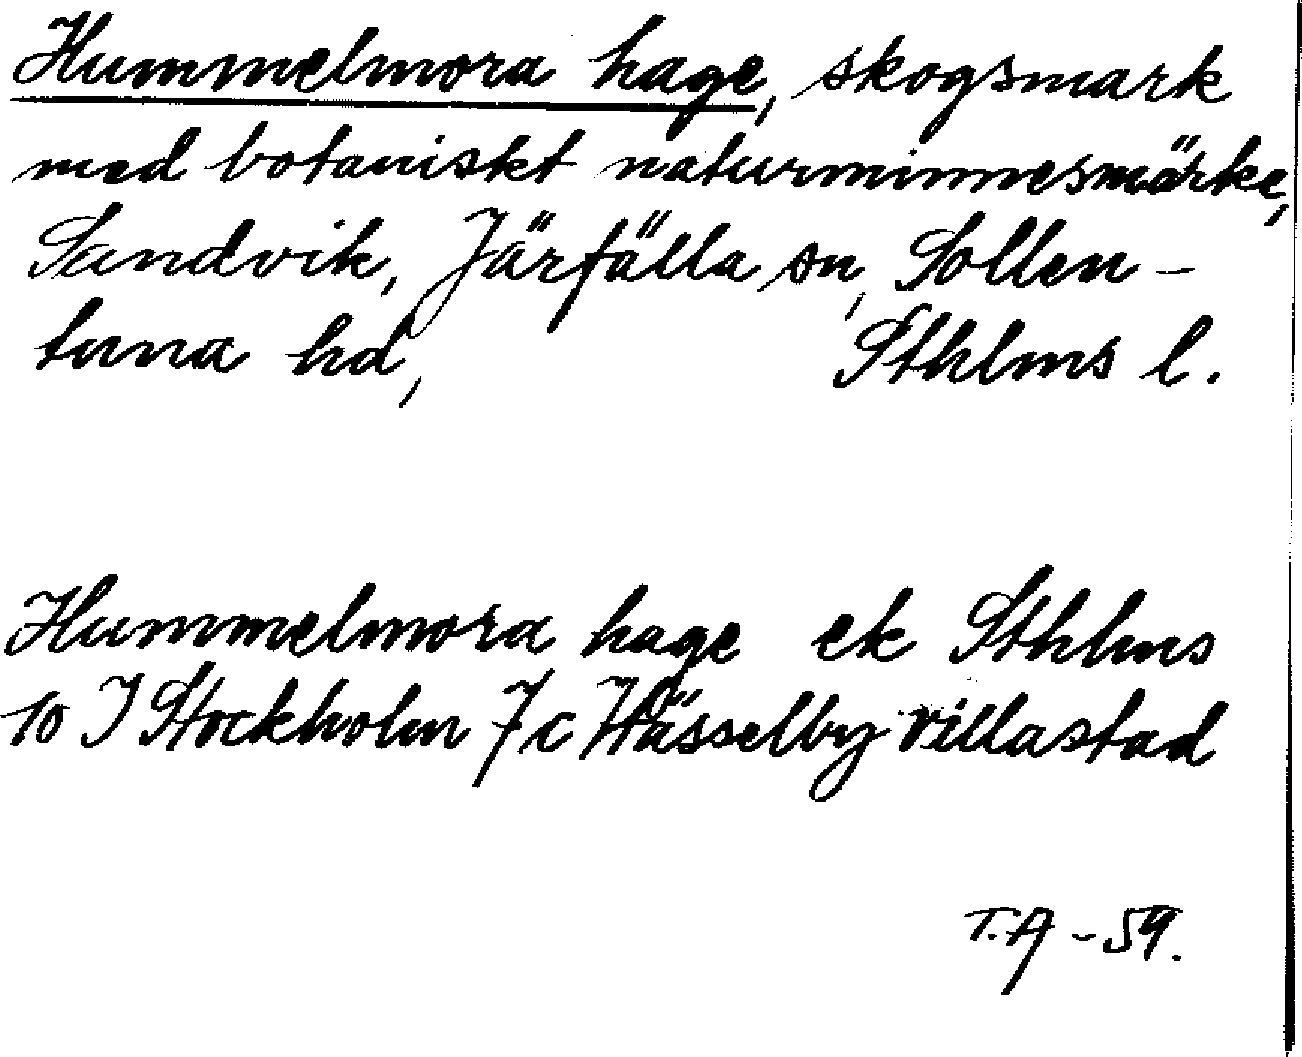 Hummelmora hage, skogsmark
med botaniskt naturminnesmärke,
Sandvik, Järfälla sn, Sollen-
tuna hd, Sthlms l.
Hummelmora hage ek Sthlms
10 I Stockholm 7c Hässelby villastad
T.A -59.